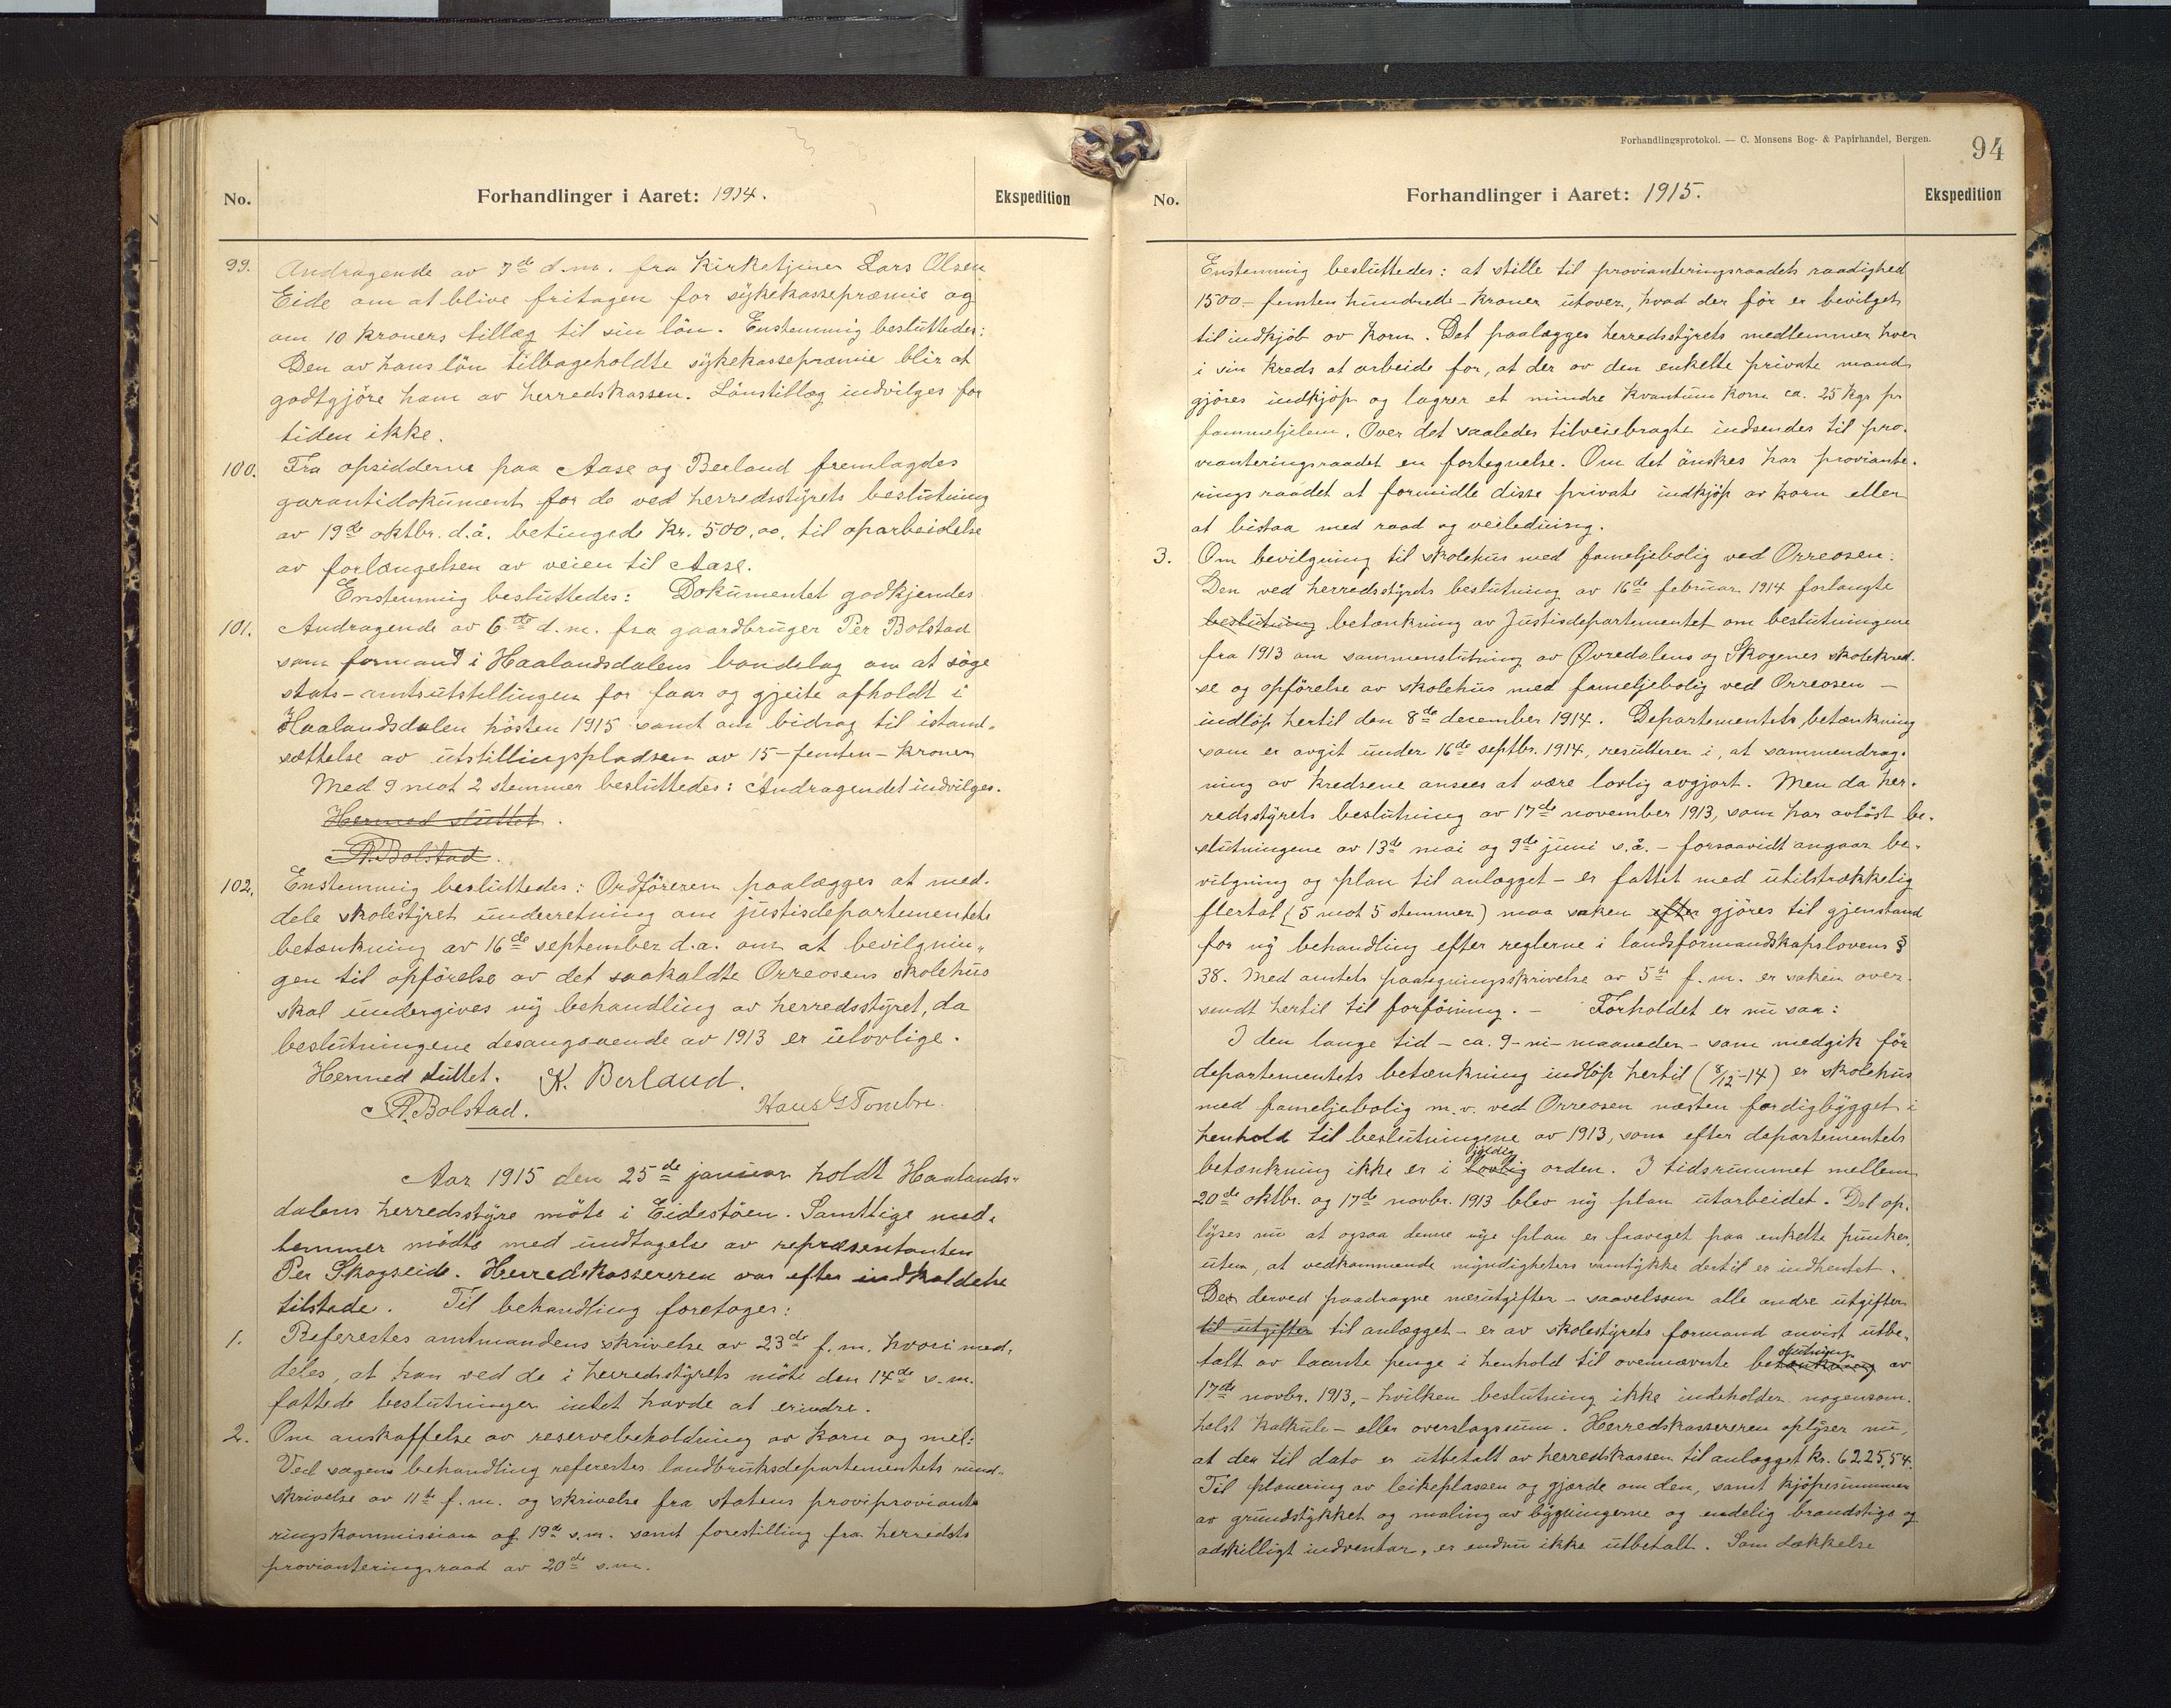 No.
Forhandlinger i Aaret: 1914.
Ekspedition
99. Andragende av 7de d.m. fra kirketjener Lars Olsen
Eide om at blive fritagen for sykekassepræmie og
om 10 kroners tillæg til sin lön. Enstemmig besluttedes:
Den av hans lön tilbageholdte sykekassepræmie blir at
godtgjöre ham av herredskassen. Lönstillæg indvilges for
tiden ikke.
100. Fra opsidderne paa Aase og Berland fremlagdes
garantidokument for de ved herredsstyrets beslutning
av 19de oktbr. d.å. betingede kr. 500,00, til oparbeidelse
av forlængelsen av veien til Aase.
Enstemmig besluttedes: Dokumentet godkjendes
101. Andragende av 6te d.m. fra gaardbruger Per Bolstad
som formand i Haalandsdalens bondelag om at söge
stats-amtsutstillingen for faar og gjeite afholdt i
Haalandsdalen hösten 1915 samt om bidrag til istand-
sættelse av utstillingspladsen av 15 - femten - kroner
Med 9 mot 2 stemmer besluttedes: Andragendet indvilges.
Hermed sluttet.
P. Bolstad.
102. Enstemmig besluttedes: Ordföreren paalægges at med-
dele skolestyret underretning om justisdepartementets
betænkning av 16de september d.a. om at bevilgnin-
gen til opförelse av det saakaldte Orreosens skolehus
skal undergives ny behandling av herredsstyret, da
beslutningene desangaaende av 1913 er ulovlige.
Hermed sluttet. K. Berland.
P. Bolstad. Hans G Tombre.
Aar 1915 den 25de januar holdt Haalands-
dalens herredsstyre möte i Eidestöen. Samtlige med-
lemmer mödte med undtagelse av repræsentanten
Per Skogseide. Herredskassereren var efter indkaldelse
tilstede. Til behandling foretoges:
1. Referertes amtmandens skrivelse av 23de f.m. hvori med-
deles, at han ved de i herredsstyrets möte den 14de s.m.
fattede beslutninger intet havde at erindre.
2. Om anskaffelse av reservebeholdning av korn og mel:
Ved sagens behandling referertes landbruksdepartementets rund-
skrivelse av 11te f.m. og skrivelse fra statens proviproviante
ringskommission af 19de s.m. samt forestilling fra herredets
provianteringsraad av 20de s.m.
Forhandlingsprotokol. — C. Monsens Bog- & Papirhandel, Bergen.
94
No.
Forhandlinger i Aaret: 1915.
Ekspedition
Enstemmig besluttedes: at stille til provianteringsraadets raadighed
1500 - femten hundrede - kroner utover, hvad der för er bevilget
til indkjöb av korn. Det paalægges herredsstyrets medlemmer hver
i sin kreds at arbeide for, at der av den enkelte private mand
gjöres indkjöp og lagrer et mindre kvantum korn ca. 25 kgr pr
fammeljelem. Over det saaledes tilveiebragte indsendes til pro-
vianteringsraadet en fortegnelse. Om det önskes har proviante-
ringsraadet at formidle disse private indkjöp av korn eller
at bistaa med raad og veiledning.
3. Om bevilgning til skolehus med fameljebolig ved Orreosen:
Den ved herredsstyrets beslutning av 16de februar 1914 forlangte
beslutning betænkning av Justisdepartementet om beslutningene
fra 1913 om sammenslutning av Övredalens og Skogenes skolekred-
se og opförelse av skolehus med fameljebolig ved Orreosen —
indlöp hertil den 8de december 1914. Departementets betænkning
som er avgit under 16de septbr. 1914, resulterer i, at sammendrag-
ning av kredsene ansees at være lovlig avgjort. Men da her-
redsstyrets beslutning av 17de november 1913, som har avlöst be-
slutningene av 13de mai og 9de juni s.å. - forsaavidt angaar be-
vilgning og plan til anlægget - er fattet med utilstrækkelig
flertal (5 mot 5 stemmer) maa saken efter gjöres til gjenstand
for ny behandling efter reglerne i landsformandskapslovens §
38. Med amtets paategningsskrivelse av 5te f.m. er saken over-
sendt hertil til forföining. — Forholdet er nu saa:
I den lange tid - ca. 9 - ni - maaneder - som medgik för
departementets betænkning indlöp hertil (8/12-14) er skolehus
med fameljebolig m.v. ved Orreosen næsten færdigbygget i
henhold til beslutningene av 1913, som efter departementets
betænkning ikke er i lovlig gyldig orden. I tidsrummet mellem
20de oktbr. og 17de novbr. 1913 blev ny plan utarbeidet. Det op-
lyses nu at ogsaa denne nye plan er fraveget paa enkelte punkter,
uten, at vedkommende myndigheters samtykke dertil er indhentet.
De derved paadragne merutgifter - saavelsom alle andre utgifter
til utgifter til anlægget - er av skolestyrets formand anvist utbe-
talt av laante penge i henhold til ovennævnte betænkning slutning av
17de novbr. 1913, - hvilken beslutning ikke indeholder nogensom-
helst kalkule - eller overslagssum. Herredskassereren oplyser nu,
at der til dato er utbetalt av herredskassen til anlægget kr. 6225,54.
Til planering av leikeplassen og gjærde om den, samt kjöpesummen
av grundstykket og maling av bygningerne og endelig brandstige og
adskilligt indventar, er endnu ikke utbetalt. Som dækkelse